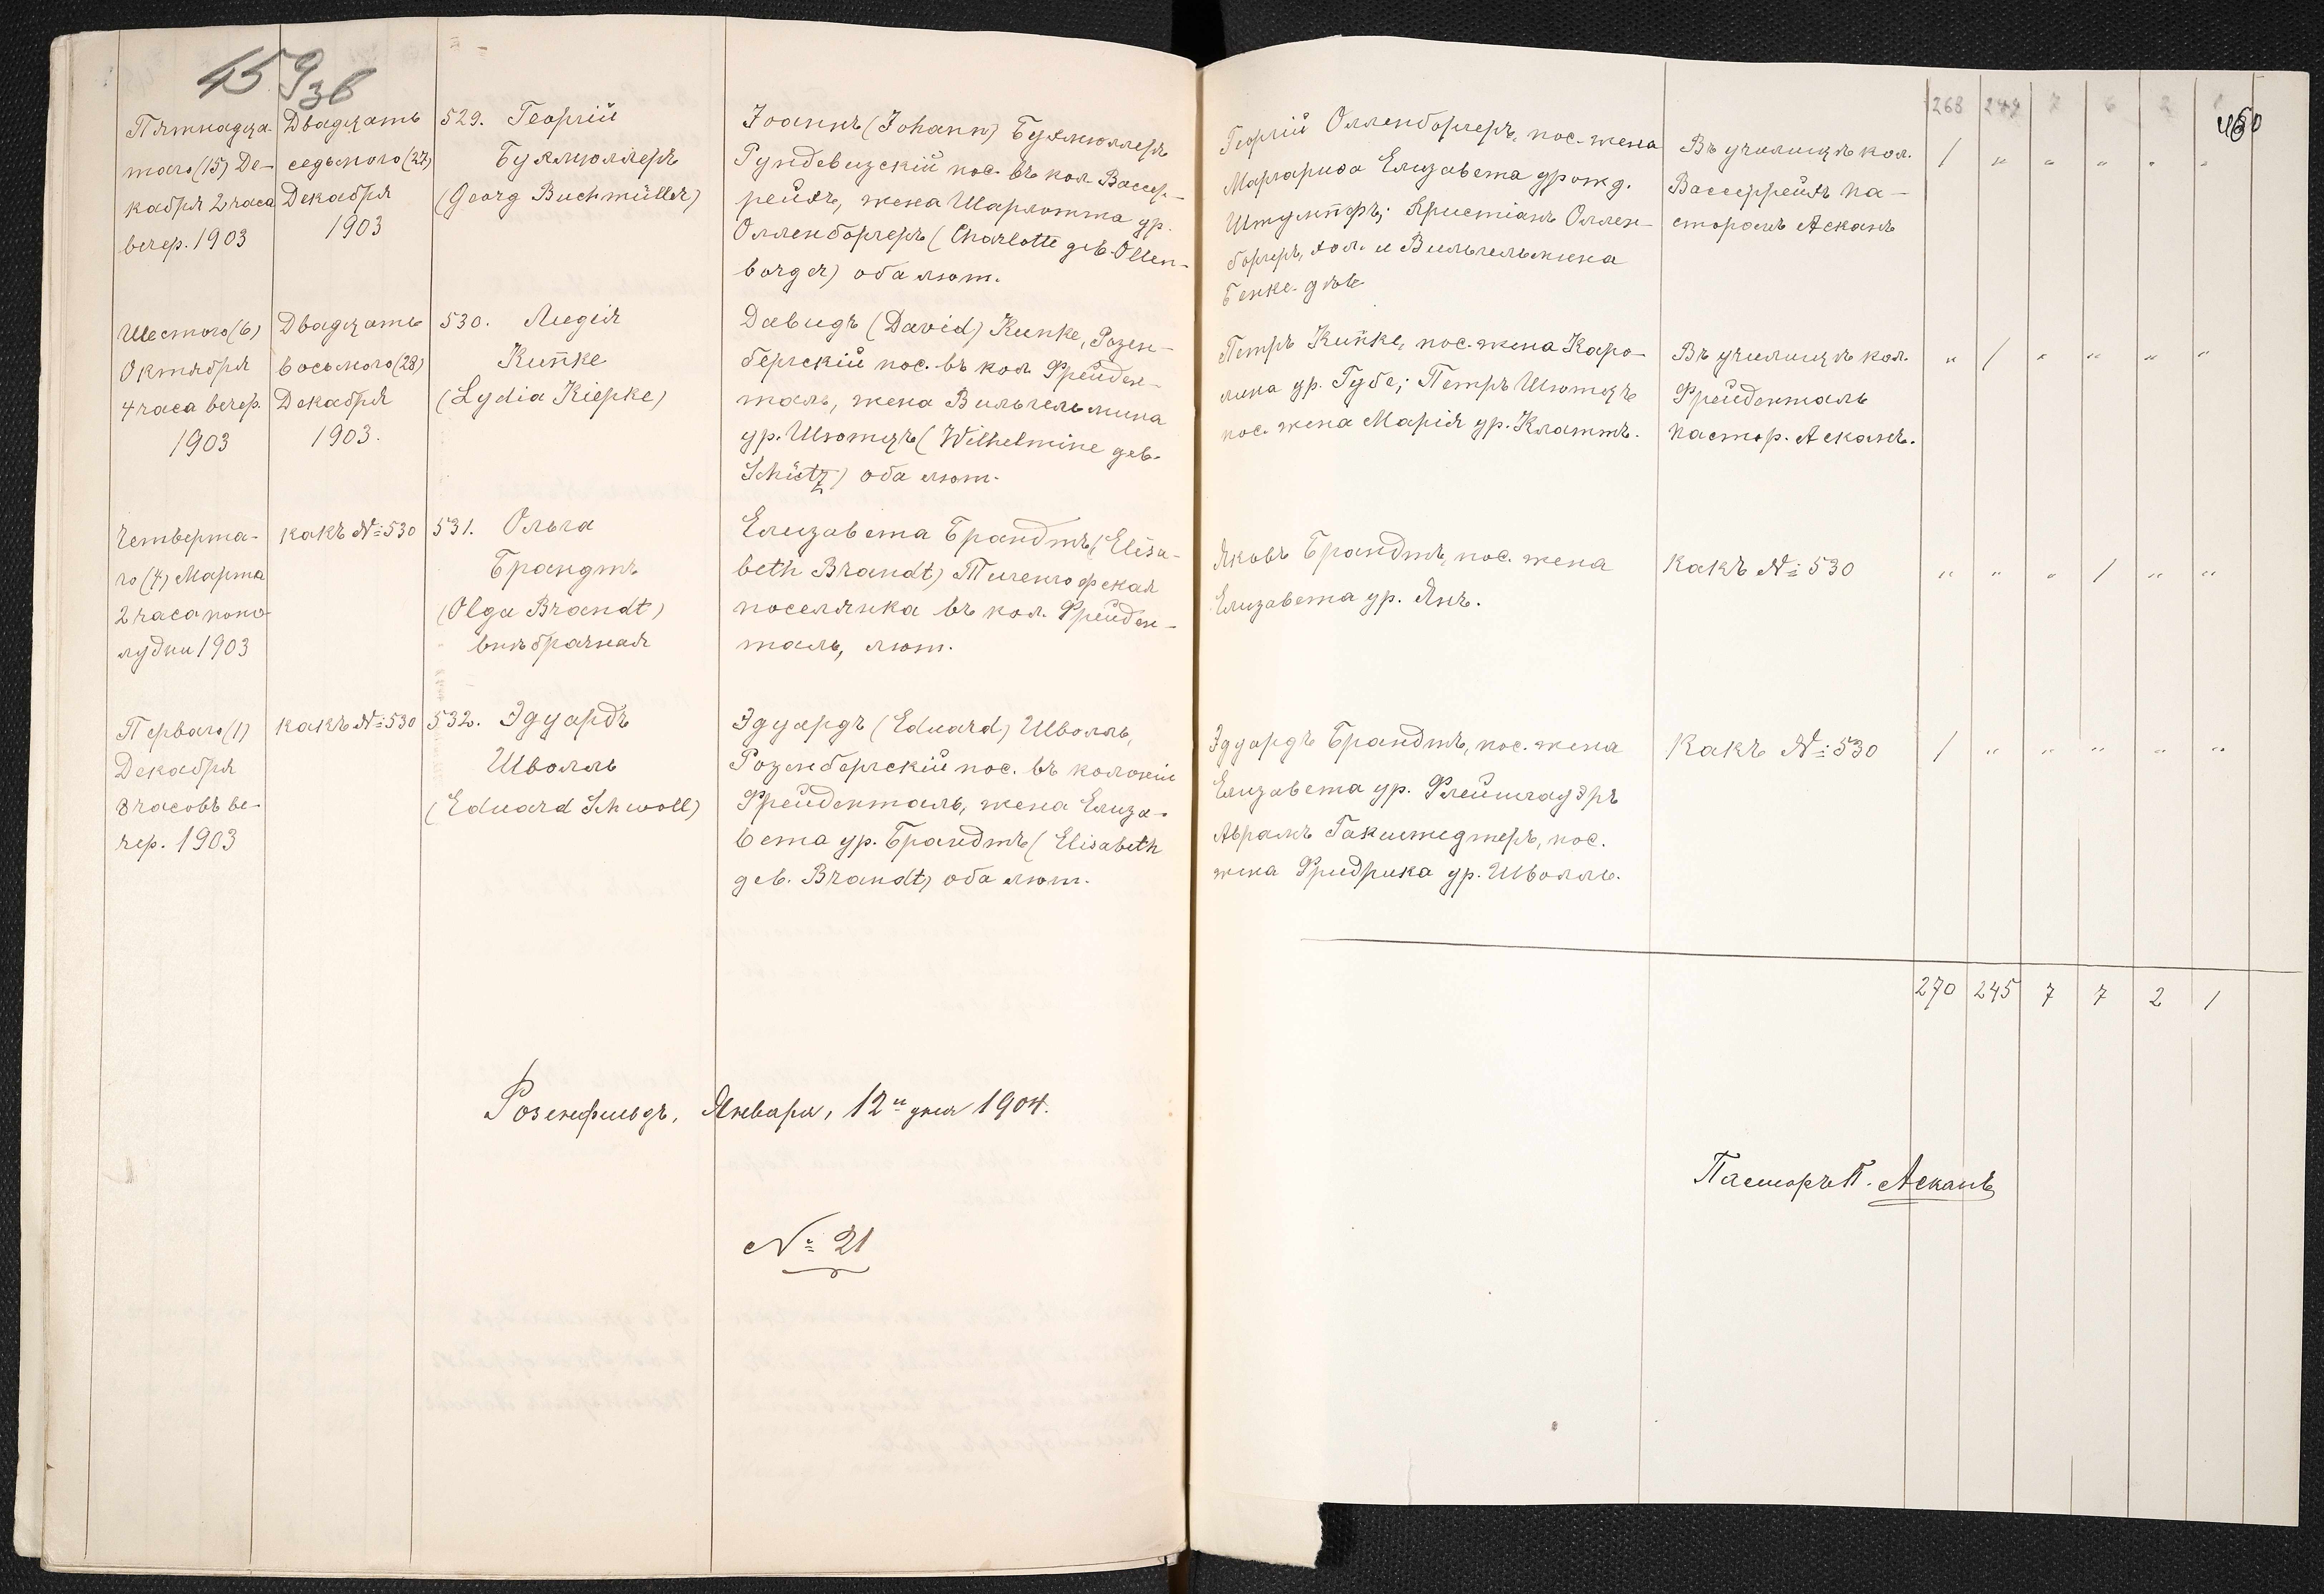 459 зв
460
268 244 7 6 2 1
Пятнадца-
таго (15) Де-
кабря 2 часа
вечер. 1903
Двадцать
седьмого (27)
Декабря
1903
529. Георгій
Бухмюллеръ
(Georg Buchmüller)
Іоаннъ (Johann) Бухмюллеръ
Рундевизскій пос. въ кол. Вассер-
рейхъ, жена Шарлотта ур.
Олленборгеръ (Charlotte geb. Ollen-
borger) оба лют.
Георгій Олленборгеръ, пос. жена
Маргарита Елизавета урожд.
Штумпфъ; Христіанъ Оллен-
боргеръ, хол. и Вильгельмина
Генке дѣв.
Въ училищѣ кол.
Вассеррейхъ па-
сторомъ Асканъ
/ " " " " "
Шестого (6)
Октября
4 часа вечер.
1903
Двадцать
восьмого (28)
Декабря
1903.
530. Лидія
Кипке
(Lydia Kiepke)
Давидъ (David) Кипке, Розен-
бергскій пос. въ кол. Фрейден-
таль, жена Вильгельмина
ур. Шютцъ (Wilhelmine geb.
Schütz) оба лют.
Петръ Кипке, пос. жена Каро-
лина ур. Губе; Петръ Шютцъ
пос. жена Марія ур. Клаттъ.
Въ училищѣ кол.
Фрейденталь
пастор. Асканъ.
" / " " " "
Четверта-
го (4) Марта
2 часа попо-
лудни 1903
какъ №530
531. Ольга
Брандтъ
(Olga Brandt)
внѣбрачная
Елизавета Брандтъ (Elisa-
beth Brandt) Тигенгофская
поселянка въ кол. Фрейден-
таль, лют.
Яковъ Брандтъ, пос. жена
Елизавета ур. Янъ.
Какъ №530
" " " / " "
Перваго (1)
Декабря
8 часовъ ве-
чер. 1903
какъ №530
532. Эдуардъ
Шволль
(Eduard Schwoll)
Эдуардъ (Eduard) Шволль,
Розенбергскій пос. въ колоніи
Фрейденталь, жена Елиза-
вета ур. Брандтъ (Elisabeth
geb. Brandt) оба лют.
Эдуардъ Брандтъ, пос. жена
Елизавета ур. Флейшгауэръ
Абрамъ Гакштедтеръ, пос.
жена Фридрика ур. Шволль.
Какъ №530
/ " " " " "
270 245 7 7 2 1
Розенфельдъ, Января, 12го дня 1904.
Пасторъ П. Асканъ
№ 21